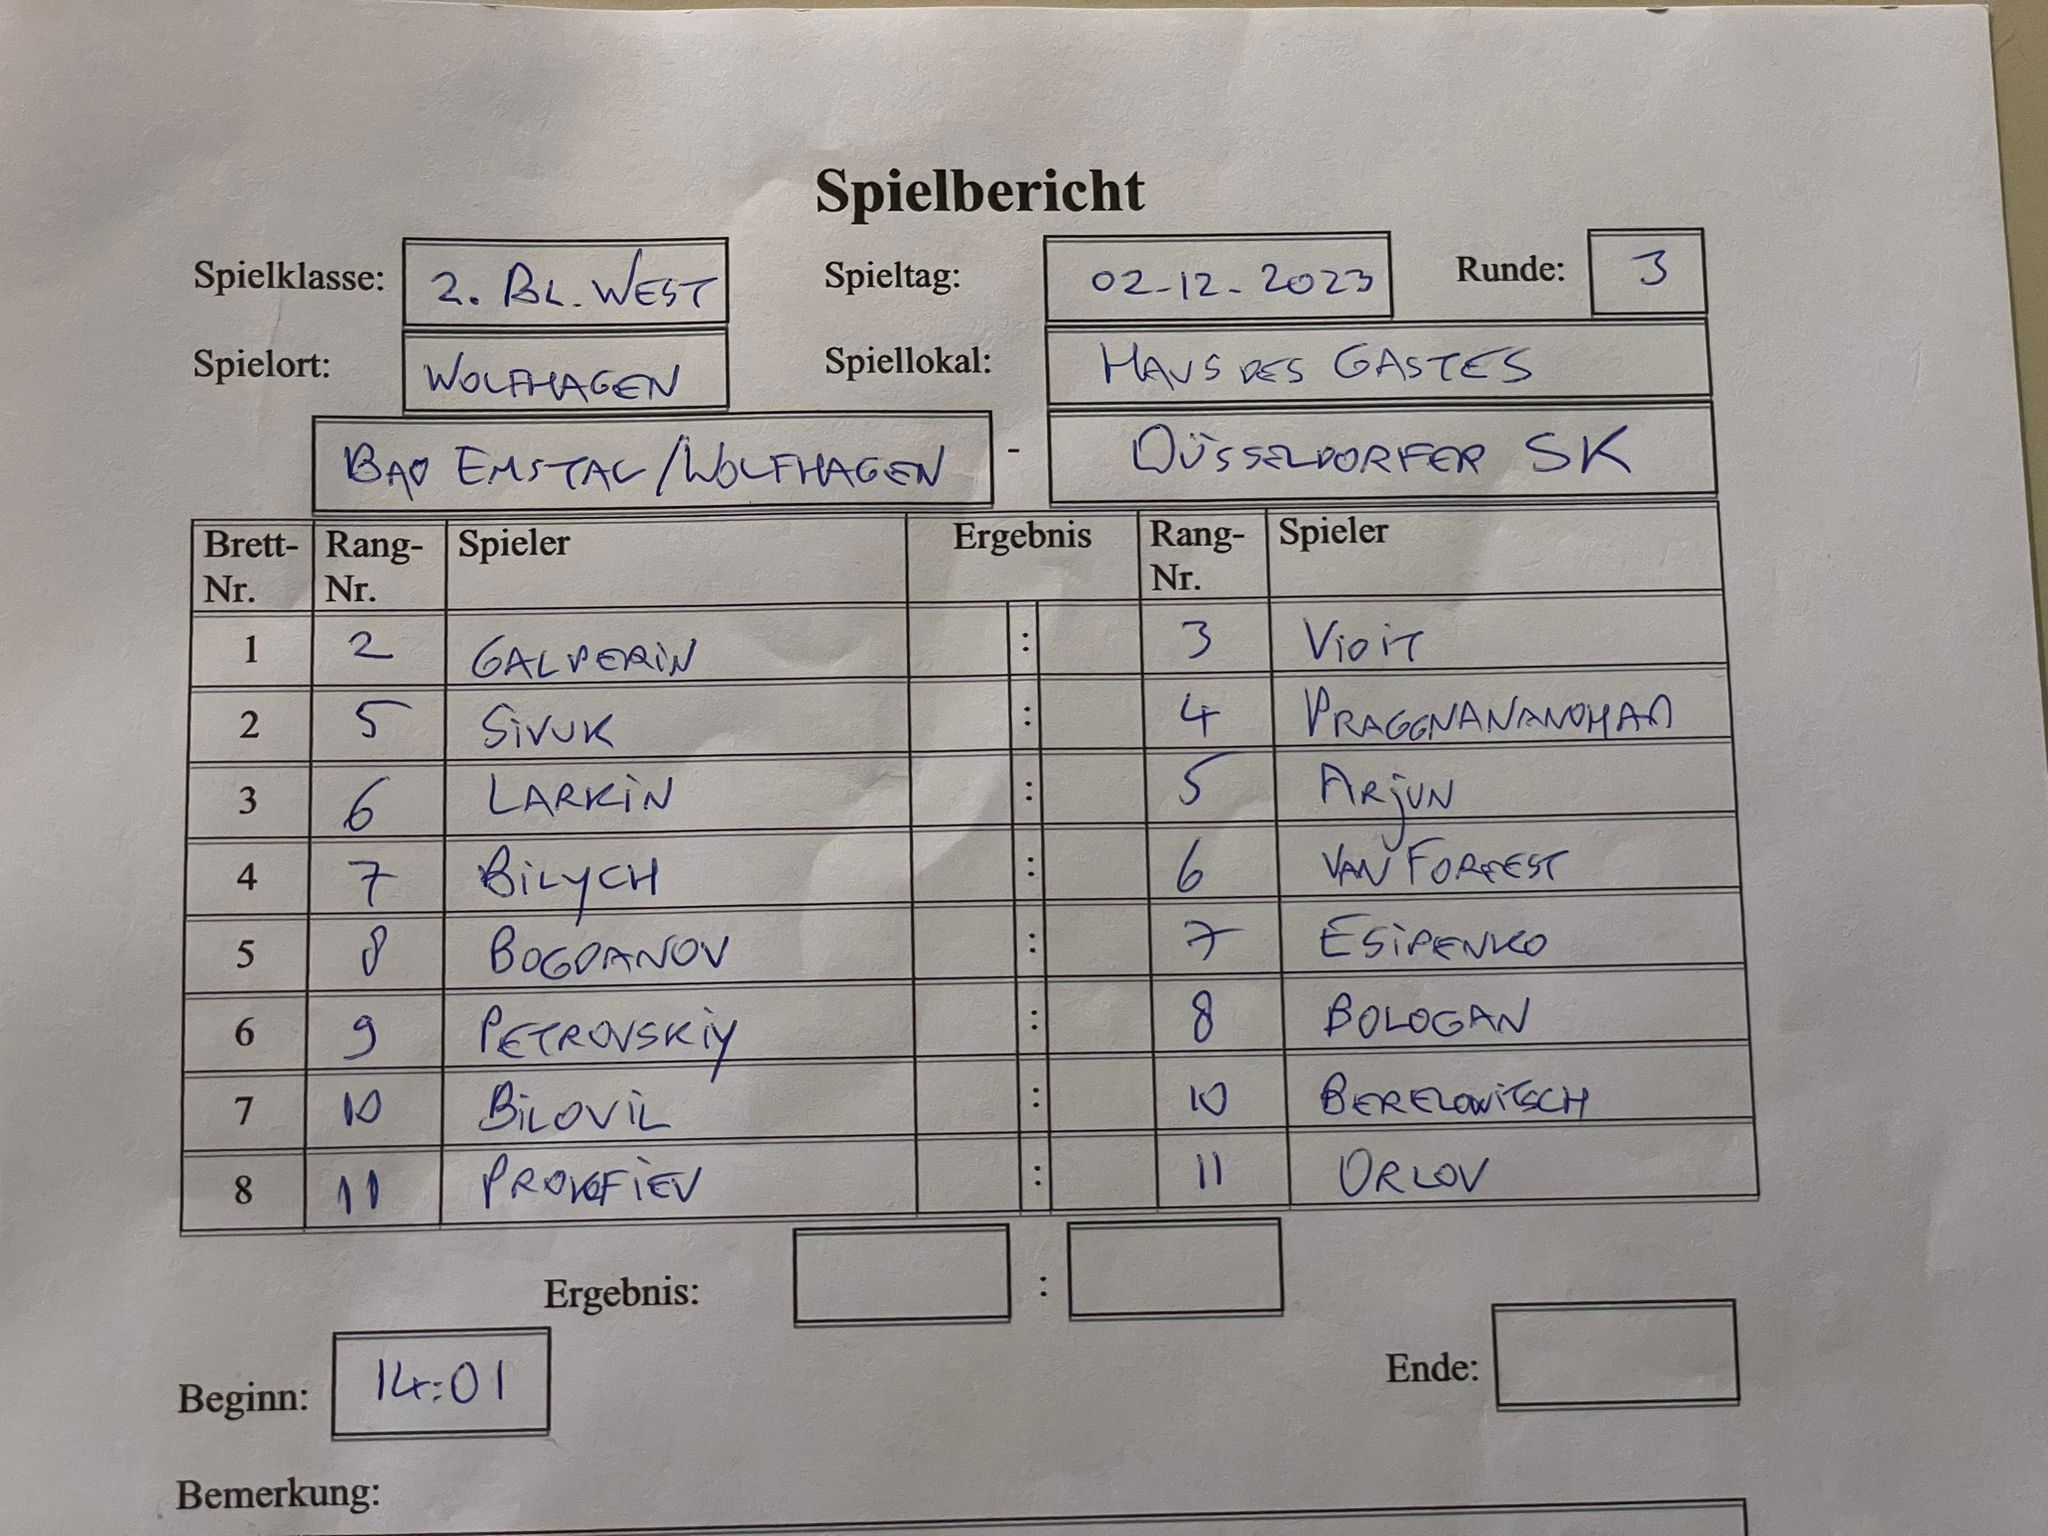 Spielbericht
Spielklasse: 2. BL. WEST Spieltag: 02-12-2023 Runde: 3
Spielort: WOLFHAGEN Spiellokal: HAUS DES GASTES
BAD EMSTAL/WOLFHAGEN - DÜSSELDORFER SK
Brett- Rang- Spieler Ergebnis Rang- Spieler
Nr. Nr. Nr.
1 2 GALPERIN : 3 VIDIT
2 5 SIVUK : 4 PRAGGNANANDHAA
3 6 LARKIN : 5 ARJUN
4 7 BILYCH : 6 VAN FOREEST
5 8 BOGDANOV : 7 ESIPENKO
6 9 PETROVSKIY : 8 BOLOGAN
7 10 BILOVIL : 10 BERELOWITSCH
8 11 PROKOFIEV : 11 ORLOV
Ergebnis: :
Beginn: 14:01 Ende:
Bemerkung: